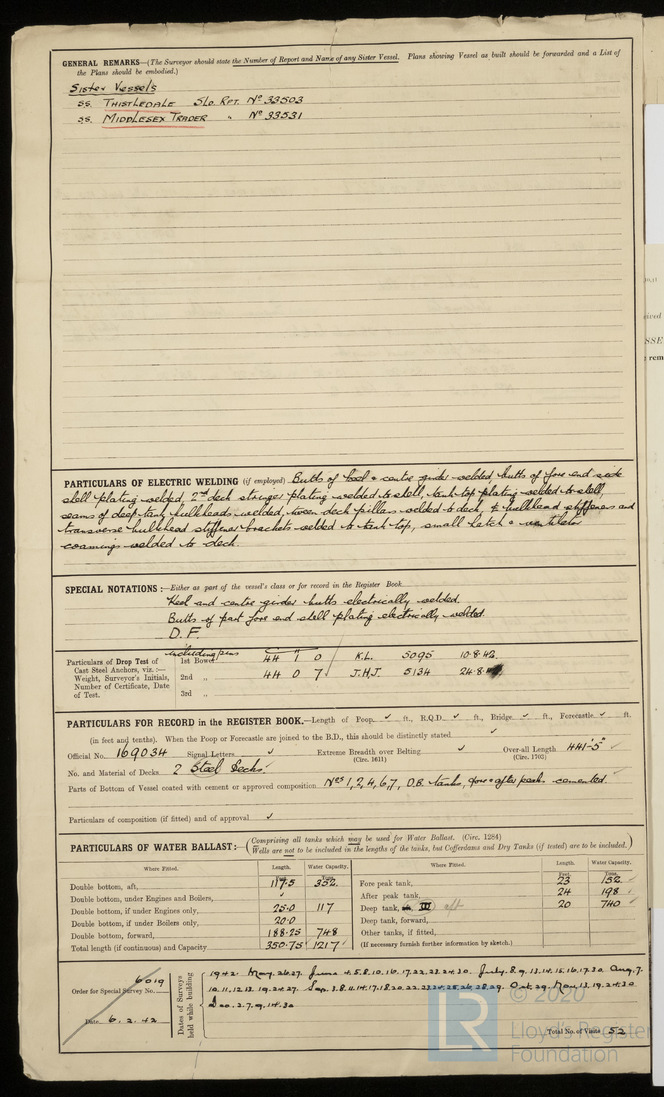 GENERAL REMARKS—(The Surveyor should state the Number of Report and Name of any Sister Vessel. Plans showing Vessel as built should be forwarded and a List of
the Plans should be embodied.)
Sister Vessels
SS. THISTLEDALE Sld. RPT. No 33503
SS. MIDDLESEX TRADER " No 33531
PARTICULARS OF ELECTRIC WELDING (if employed) Butts of keel & centre girder welded, butts of fore end side
shell plating welded, 2nd deck stringer plating welded to shell, tank top plating welded to shell,
seams of deep tank bulkheads welded, tween deck pillars welded to deck, & bulkhead stiffeners and
transverse bulkhead stiffener brackets welded to tank top, small hatch & ventilator
coamings welded to deck
SPECIAL NOTATIONS:—Either as part of the vessel's class or for record in the Register Book
Keel and centre girder butts electrically welded.
Butts of part fore end shell plating electrically welded.
D.F.
including pins
Particulars of Drop Test of
Cast Steel Anchors, viz.:—
Weight, Surveyor's Initials,
Number of Certificate, Date
of Test.
1st Bower 44 1 0 K.L. 5095 10.8.42
2nd " 44 0 7 J.H.J. 5134 24.8.
3rd "
PARTICULARS FOR RECORD in the REGISTER BOOK.—Length of Poop ✓ ft., R.Q.D. ✓ ft., Bridge ✓ ft., Forecastle ✓ ft.
(in feet and tenths). When the Poop or Forecastle are joined to the B.D., this should be distinctly stated ✓
Official No. 169034 Signal Letters ✓ Extreme Breadth over Belting ✓ Over-all Length 441'-5" ✓
(Circ. 1611) (Circ. 1703)
No. and Material of Decks 2 Steel Decks
Parts of Bottom of Vessel coated with cement or approved composition Nos 1, 2, 4, 6, 7, D.B. tanks, fore & after peaks cemented.
Particulars of composition (if fitted) and of approval ✓
PARTICULARS OF WATER BALLAST:— (Comprising all tanks which may be used for Water Ballast. (Circ. 1284)
Wells are not to be included in the lengths of the tanks, but Cofferdams and Dry Tanks (if tested) are to be included.)
Where Fitted. Length. Water Capacity. Where Fitted. Length. Water Capacity.
Feet. Tons. Feet. Tons.
Double bottom, aft, 117.5 352 Fore peak tank, 23 152 ✓
Double bottom, under Engines and Boilers, ✓ After peak tank, 24 198 ✓
Double bottom, if under Engines only, 25.0 117 Deep tank, III aft 20 740 ✓
Double bottom, if under Boilers only, 20.0 Deep tank, forward,
Double bottom, forward, 188.25 748 Other tanks, if fitted,
Total length (if continuous) and Capacity 350.75 1217 ✓ (If necessary furnish further information by sketch.)
Order for Special Survey No. 6019
Date 6.2.42
Dates of Surveys
held while building
1942 May.26.27. June 4.5.8.10.16.17.22.23.24.30. July.8.9.13.14.15.16.17.30. Aug.7.
10.11.12.13.19.24.27. Sep.3.8.11.14.17.18.20.22.23.24.25.26.28.29. Oct.29. Nov.13.19.24.30
Dec.2.7.9.14.30
Total No. of Visits 52
LR
© 2020
Lloyd's Register
Foundation